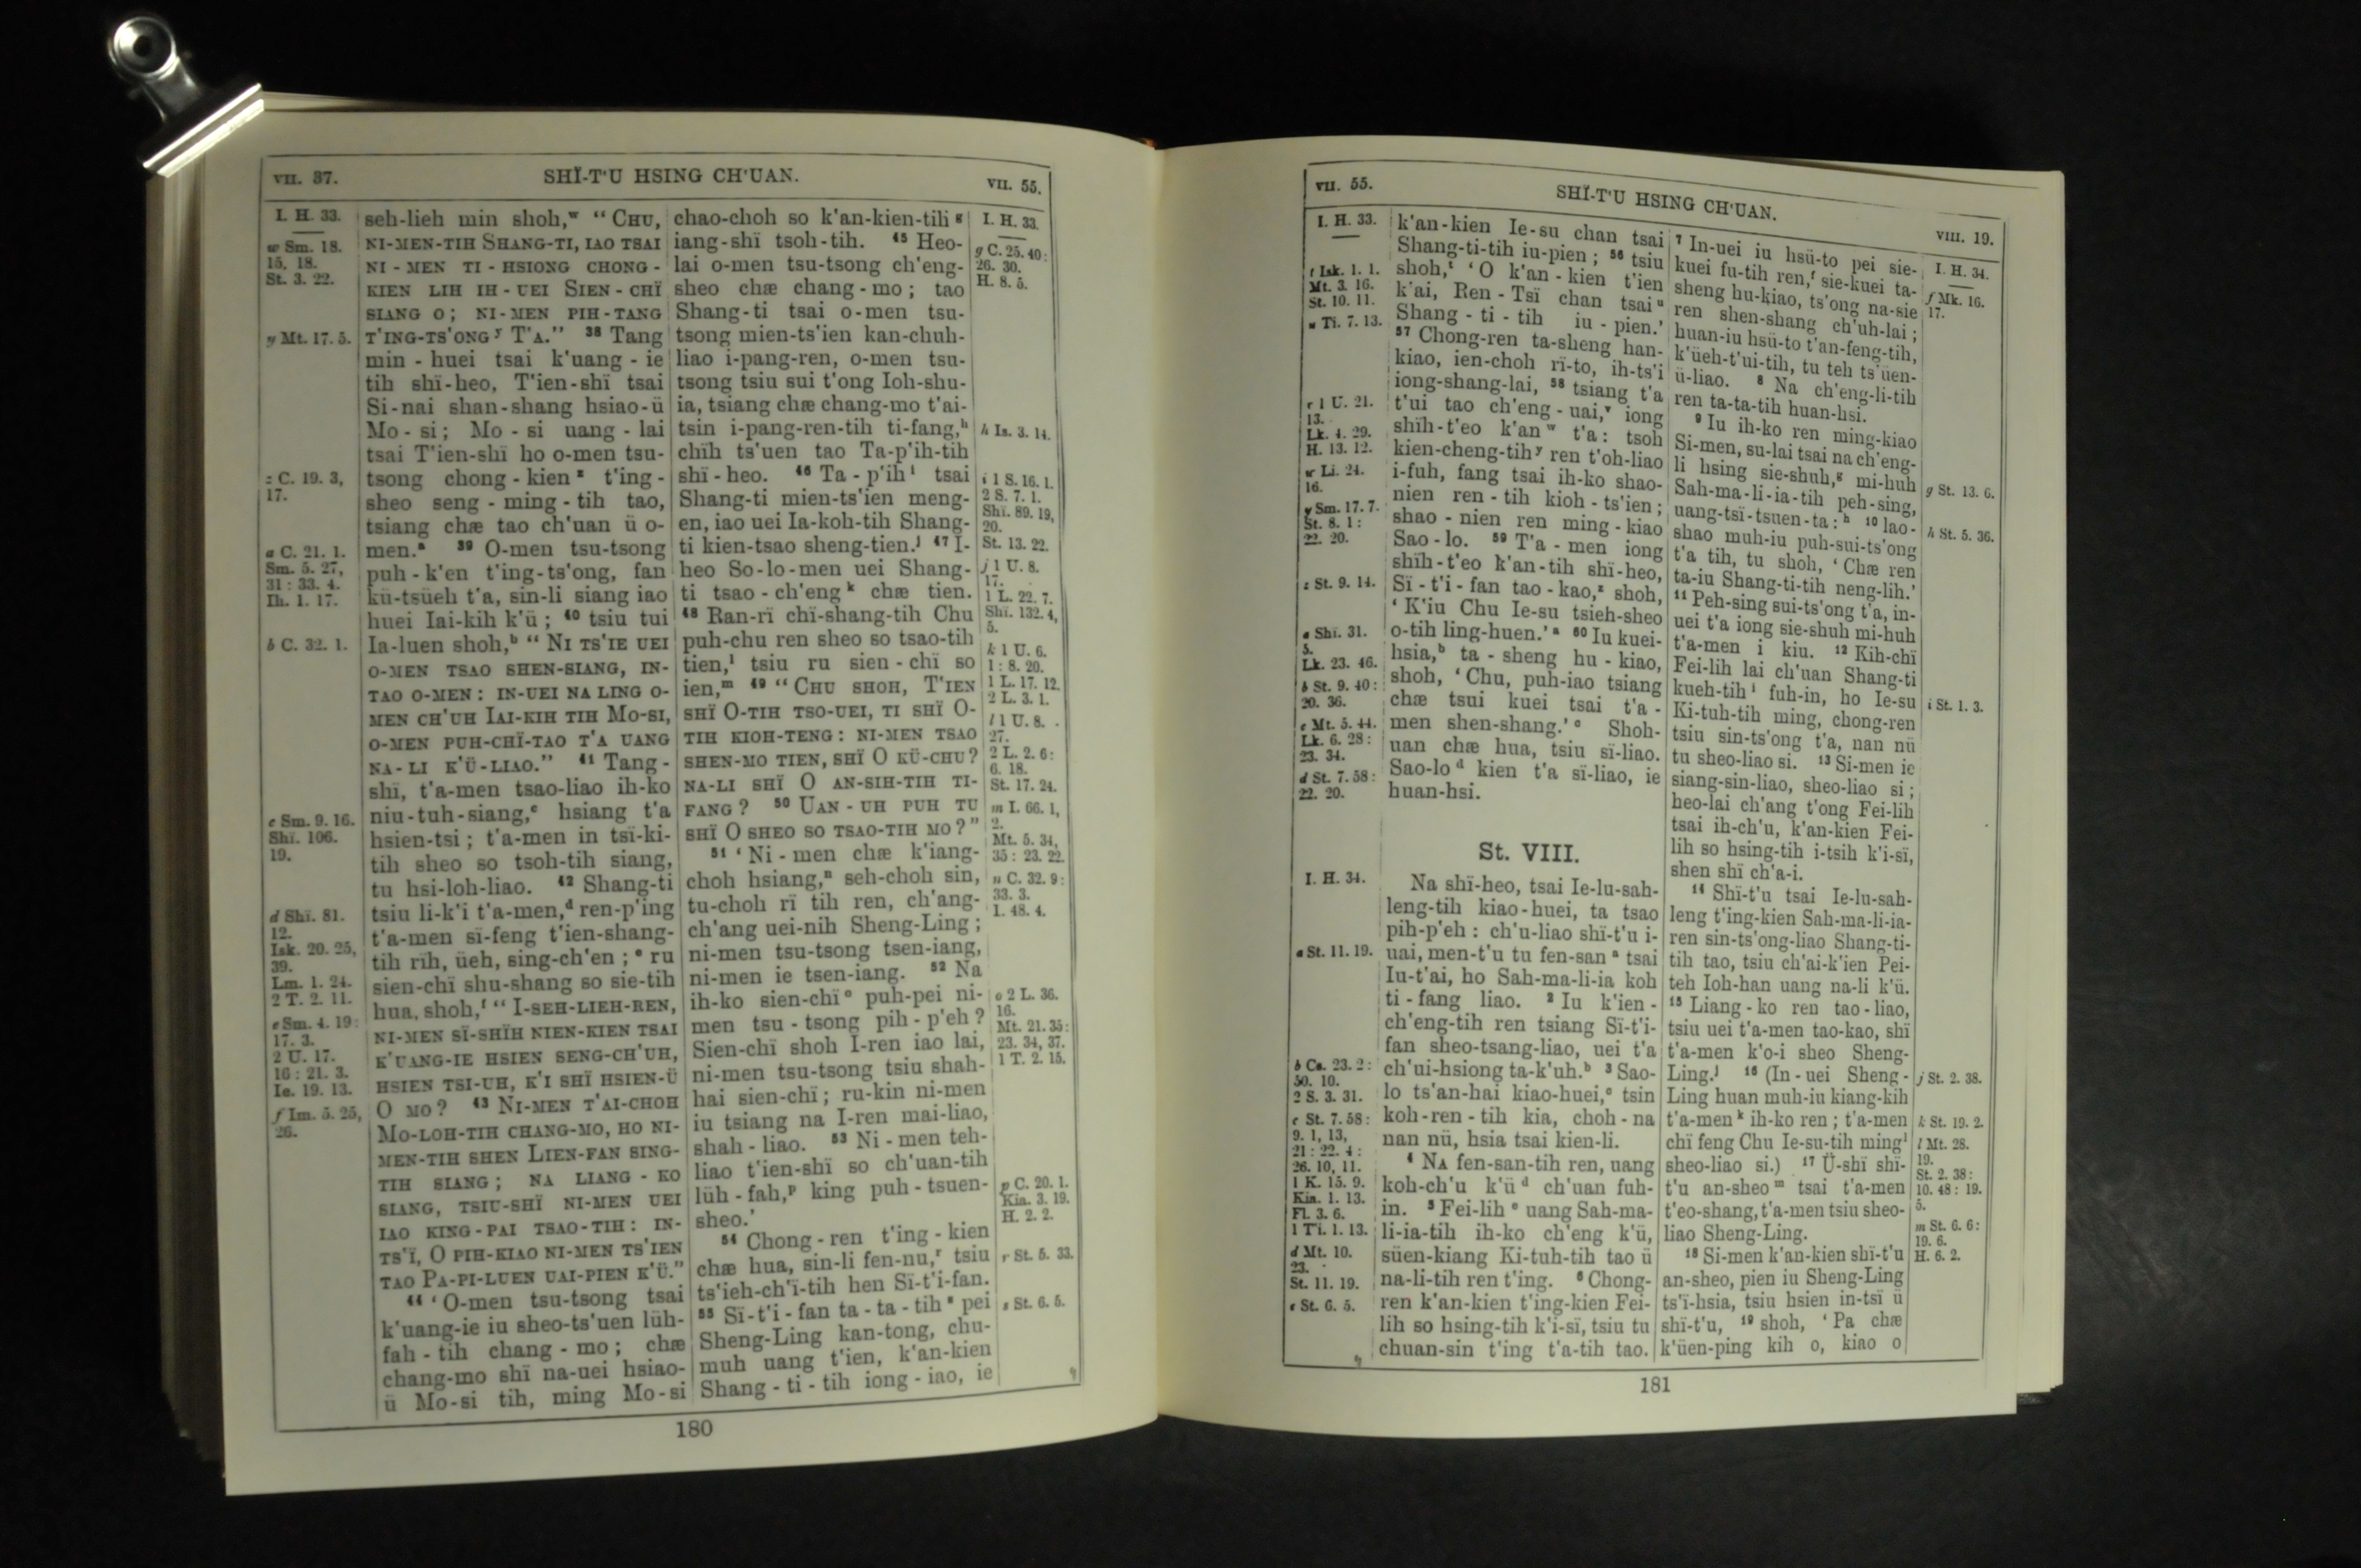 VII. 37.
SHÏ-T'U HSING CH'UAN.
VII. 55.
I. H. 33.
w Sm. 18.
15, 18.
St. 3. 22.
y Mt. 17. 5.
z C. 19. 3,
17.
a C. 21. 1.
Sm. 5. 27,
31: 33. 4.
Ih. 1. 17.
b C. 32. 1.
c Sm. 9. 16.
Shï. 106.
19.
d Shï. 81.
12.
Isk. 20. 25,
39.
Lm. 1. 24.
2 T. 2. 11.
e Sm. 4. 19:
17. 3.
2 U. 17.
16: 21. 3.
Ie. 19. 13.
f Im. 5. 25,
26.
seh-lieh min shoh,ʷ “CHU,
NI-MEN-TIH SHANG-TI, IAO TSAI
NI-MEN TI-HSIONG CHONG-
KIEN LIH IH-UEI SIEN-CHÏ
SIANG O; NI-MEN PIH-TANG
T'ING-TS'ONGʸ T'A.” 38 Tang
min-huei tsai k'uang-ie
tih shï-heo, T'ien-shï tsai
Si-nai shan-shang hsiao-ü
Mo-si; Mo-si uang-lai
tsai T'ien-shï ho o-men tsu-
tsong chong-kienᶻ t'ing-
sheo seng-ming-tih tao,
tsiang chæ tao ch'uan ü o-
men.ᵃ 39 O-men tsu-tsong
puh-k'en t'ing-ts'ong, fan
kü-tsüeh t'a, sin-li siang iao
huei Iai-kih k'ü; 40 tsiu tui
Ia-luen shoh,ᵇ “NI TS'IE UEI
O-MEN TSAO SHEN-SIANG, IN-
TAO O-MEN: IN-UEI NA LING O-
MEN CH'UH IAI-KIH TIH MO-SI,
O-MEN PUH-CHÏ-TAO T'A UANG
NA-LI K'Ü-LIAO.” 41 Tang-
shï, t'a-men tsao-liao ih-ko
niu-tuh-siang,ᶜ hsiang t'a
hsien-tsi; t'a-men in tsï-ki-
tih sheo so tsoh-tih siang,
tu hsi-loh-liao. 42 Shang-ti
tsiu li-k'i t'a-men,ᵈ ren-p'ing
t'a-men sï-feng t'ien-shang-
tih rïh, üeh, sing-ch'en;ᵉ ru
sien-chï shu-shang so sie-tih
hua, shoh,ᶠ “I-SEH-LIEH-REN,
NI-MEN SÏ-SHÏH NIEN-KIEN TSAI
K'UANG-IE HSIEN SENG-CH'UH,
HSIEN TSI-UH, K'I SHÏ HSIEN-Ü
O MO? 43 NI-MEN T'AI-CHOH
MO-LOH-TIH CHANG-MO, HO NI-
MEN-TIH SHEN LIEN-FAN SING-
TIH SIANG; NA LIANG-KO
SIANG, TSIU-SHÏ NI-MEN UEI
IAO KING-PAI TSAO-TIH: IN-
TS'Ï, O PIH-KIAO NI-MEN TS'IEN
TAO PA-PI-LUEN UAI-PIEN K'Ü.”
44 ‘O-men tsu-tsong tsai
k'uang-ie iu sheo-ts'uen lüh-
fah-tih chang-mo; chæ
chang-mo shï na-uei hsiao-
ü Mo-si tih, ming Mo-si
chao-choh so k'an-kien-tiliᵍ
iang-shï tsoh-tih. 45 Heo-
lai o-men tsu-tsong ch'eng-
sheo chæ chang-mo; tao
Shang-ti tsai o-men tsu-
tsong mien-ts'ien kan-chuh-
liao i-pang-ren, o-men tsu-
tsong tsiu sui t'ong Ioh-shu-
ia, tsiang chæ chang-mo t'ai-
tsin i-pang-ren-tih ti-fang,ʰ
chïh ts'uen tao Ta-p'ih-tih
shï-heo. 46 Ta-p'ihⁱ tsai
Shang-ti mien-ts'ien meng-
en, iao uei Ia-koh-tih Shang-
ti kien-tsao sheng-tien.ʲ 47 I-
heo So-lo-men uei Shang-
ti tsao-ch'engᵏ chæ tien.
48 Ran-rï chï-shang-tih Chu
puh-chu ren sheo so tsao-tih
tien,ˡ tsiu ru sien-chï so
ien,ᵐ 49 “CHU SHOH, T'IEN
SHÏ O-TIH TSO-UEI, TI SHÏ O-
TIH KIOH-TENG: NI-MEN TSAO
SHEN-MO TIEN, SHÏ O KÜ-CHU?
NA-LI SHÏ O AN-SIH-TIH TI-
FANG? 50 UAN-UH PUH TU
SHÏ O SHEO SO TSAO-TIH MO?”
51 ‘Ni-men chæ k'iang-
choh hsiang,ⁿ seh-choh sin,
tu-choh rï tih ren, ch'ang-
ch'ang uei-nih Sheng-Ling;
ni-men tsu-tsong tsen-iang,
ni-men ie tsen-iang. 52 Na
ih-ko sien-chïᵒ puh-pei ni-
men tsu-tsong pih-p'eh?
Sien-chï shoh I-ren iao lai,
ni-men tsu-tsong tsiu shah-
hai sien-chï; ru-kin ni-men
iu tsiang na I-ren mai-liao,
shah-liao. 53 Ni-men teh-
liao t'ien-shï so ch'uan-tih
lüh-fah,ᵖ king puh-tsuen-
sheo.’
54 Chong-ren t'ing-kien
chæ hua, sin-li fen-nu,ʳ tsiu
ts'ieh-ch'ï-tih hen Sï-t'i-fan.
55 Sï-t'i-fan ta-ta-tihˢ pei
Sheng-Ling kan-tong, chu-
muh uang t'ien, k'an-kien
Shang-ti-tih iong-iao, ie
I. H. 33.
g C. 25. 40:
26. 30.
H. 8. 5.
h Is. 3. 14.
i 1 S. 16. 1.
2 S. 7. 1.
Shï. 89. 19,
20.
St. 13. 22.
j 1 U. 8.
17.
1 L. 22. 7.
Shï. 132. 4,
5.
k 1 U. 6.
1: 8. 20.
1 L. 17. 12.
2 L. 3. 1.
l 1 U. 8.
27.
2 L. 2. 6:
6. 18.
St. 17. 24.
m I. 66. 1,
2.
Mt. 5. 34,
35: 23. 22.
n C. 32. 9:
33. 3.
I. 48. 4.
o 2 L. 36.
16.
Mt. 21. 35:
23. 34, 37.
1 T. 2. 15.
p C. 20. 1.
Kia. 3. 19.
H. 2. 2.
r St. 5. 33.
s St. 6. 5.
180
VII. 55.
SHÏ-T'U HSING CH'UAN.
VIII. 19.
I. H. 33.
t Isk. 1. 1.
Mt. 3. 16.
St. 10. 11.
u Ti. 7. 13.
v 1 U. 21.
13.
Lk. 4. 29.
H. 13. 12.
w Li. 24.
16.
y Sm. 17. 7.
St. 8. 1:
22. 20.
z St. 9. 14.
a Shï. 31.
5.
Lk. 23. 46.
b St. 9. 40:
20. 36.
c Mt. 5. 44.
Lk. 6. 28:
23. 34.
d St. 7. 58:
22. 20.
I. H. 34.
a St. 11. 19.
b Cs. 23. 2:
50. 10.
2 S. 3. 31.
c St. 7. 58:
9. 1, 13,
21: 22. 4:
26. 10, 11.
1 K. 15. 9.
Kia. 1. 13.
Fl. 3. 6.
1 Ti. 1. 13.
d Mt. 10.
23.
St. 11. 19.
e St. 6. 5.
k'an-kien Ie-su chan tsai
Shang-ti-tih iu-pien; 56 tsiu
shoh,ᵗ ‘O k'an-kien t'ien
k'ai, Ren-Tsï chan tsaiᵘ
Shang-ti-tih iu-pien.’
57 Chong-ren ta-sheng han-
kiao, ien-choh rï-to, ih-ts'i
iong-shang-lai, 58 tsiang t'a
t'ui tao ch'eng-uai,ᵛ iong
shïh-t'eo k'anʷ t'a: tsoh
kien-cheng-tihʸ ren t'oh-liao
i-fuh, fang tsai ih-ko shao-
nien ren-tih kioh-ts'ien;
shao-nien ren ming-kiao
Sao-lo. 59 T'a-men iong
shïh-t'eo k'an-tih shï-heo,
Sï-t'i-fan tao-kao,ᶻ shoh,
‘K'iu Chu Ie-su tsieh-sheo
o-tih ling-huen.’ᵃ 60 Iu kuei-
hsia,ᵇ ta-sheng hu-kiao,
shoh, ‘Chu, puh-iao tsiang
chæ tsui kuei tsai t'a-
men shen-shang.’ᶜ Shoh-
uan chæ hua, tsiu sï-liao.
Sao-loᵈ kien t'a sï-liao, ie
huan-hsi.
St. VIII.
Na shï-heo, tsai Ie-lu-sah-
leng-tih kiao-huei, ta tsao
pih-p'eh: ch'u-liao shï-t'u i-
uai, men-t'u tu fen-sanᵃ tsai
Iu-t'ai, ho Sah-ma-li-ia koh
ti-fang liao. 2 Iu k'ien-
ch'eng-tih ren tsiang Sï-t'i-
fan sheo-tsang-liao, uei t'a
ch'ui-hsiong ta-k'uh.ᵇ 3 Sao-
lo ts'an-hai kiao-huei,ᶜ tsin
koh-ren-tih kia, choh-na
nan nü, hsia tsai kien-li.
4 NA fen-san-tih ren, uang
koh-ch'u k'üᵈ ch'uan fuh-
in. 5 Fei-lihᵉ uang Sah-ma-
li-ia-tih ih-ko ch'eng k'ü,
süen-kiang Ki-tuh-tih tao ü
na-li-tih ren t'ing. 6 Chong-
ren k'an-kien t'ing-kien Fei-
lih so hsing-tih k'i-sï, tsiu tu
chuan-sin t'ing t'a-tih tao.
7 In-uei iu hsü-to pei sie-
kuei fu-tih ren,ᶠ sie-kuei ta-
sheng hu-kiao, ts'ong na-sie
ren shen-shang ch'uh-lai;
huan-iu hsü-to t'an-feng-tih,
k'üeh-t'ui-tih, tu teh ts'üen-
ü-liao. 8 Na ch'eng-li-tih
ren ta-ta-tih huan-hsi.
9 Iu ih-ko ren ming-kiao
Si-men, su-lai tsai na ch'eng-
li hsing sie-shuh,ᵍ mi-huh
Sah-ma-li-ia-tih peh-sing,
uang-tsï-tsuen-ta:ʰ 10 lao-
shao muh-iu puh-sui-ts'ong
t'a tih, tu shoh, ‘Chæ ren
ta-iu Shang-ti-tih neng-lih.’
11 Peh-sing sui-ts'ong t'a, in-
uei t'a iong sie-shuh mi-huh
t'a-men i kiu. 12 Kih-chï
Fei-lih lai ch'uan Shang-ti
kueh-tihⁱ fuh-in, ho Ie-su
Ki-tuh-tih ming, chong-ren
tsiu sin-ts'ong t'a, nan nü
tu sheo-liao si. 13 Si-men ie
siang-sin-liao, sheo-liao si;
heo-lai ch'ang t'ong Fei-lih
tsai ih-ch'u, k'an-kien Fei-
lih so hsing-tih i-tsih k'i-sï,
shen shï ch'a-i.
14 Shï-t'u tsai Ie-lu-sah-
leng t'ing-kien Sah-ma-li-ia-
ren sin-ts'ong-liao Shang-ti-
tih tao, tsiu ch'ai-k'ien Pei-
teh Ioh-han uang na-li k'ü.
15 Liang-ko ren tao-liao,
tsiu uei t'a-men tao-kao, shï
t'a-men k'o-i sheo Sheng-
Ling.ʲ 16 (In-uei Sheng-
Ling huan muh-iu kiang-kih
t'a-menᵏ ih-ko ren; t'a-men
chï feng Chu Ie-su-tih mingˡ
sheo-liao si.) 17 Ü-shï shï-
t'u an-sheoᵐ tsai t'a-men
t'eo-shang, t'a-men tsiu sheo-
liao Sheng-Ling.
18 Si-men k'an-kien shï-t'u
an-sheo, pien iu Sheng-Ling
ts'ï-hsia, tsiu hsien in-tsï ü
shï-t'u, 19 shoh, ‘Pa chæ
k'üen-ping kih o, kiao o
I. H. 34.
f Mk. 16.
17.
g St. 13. 6.
h St. 5. 36.
i St. 1. 3.
j St. 2. 38.
k St. 19. 2.
l Mt. 28.
19.
St. 2. 38:
10. 48: 19.
5.
m St. 6. 6:
19. 6.
H. 6. 2.
181